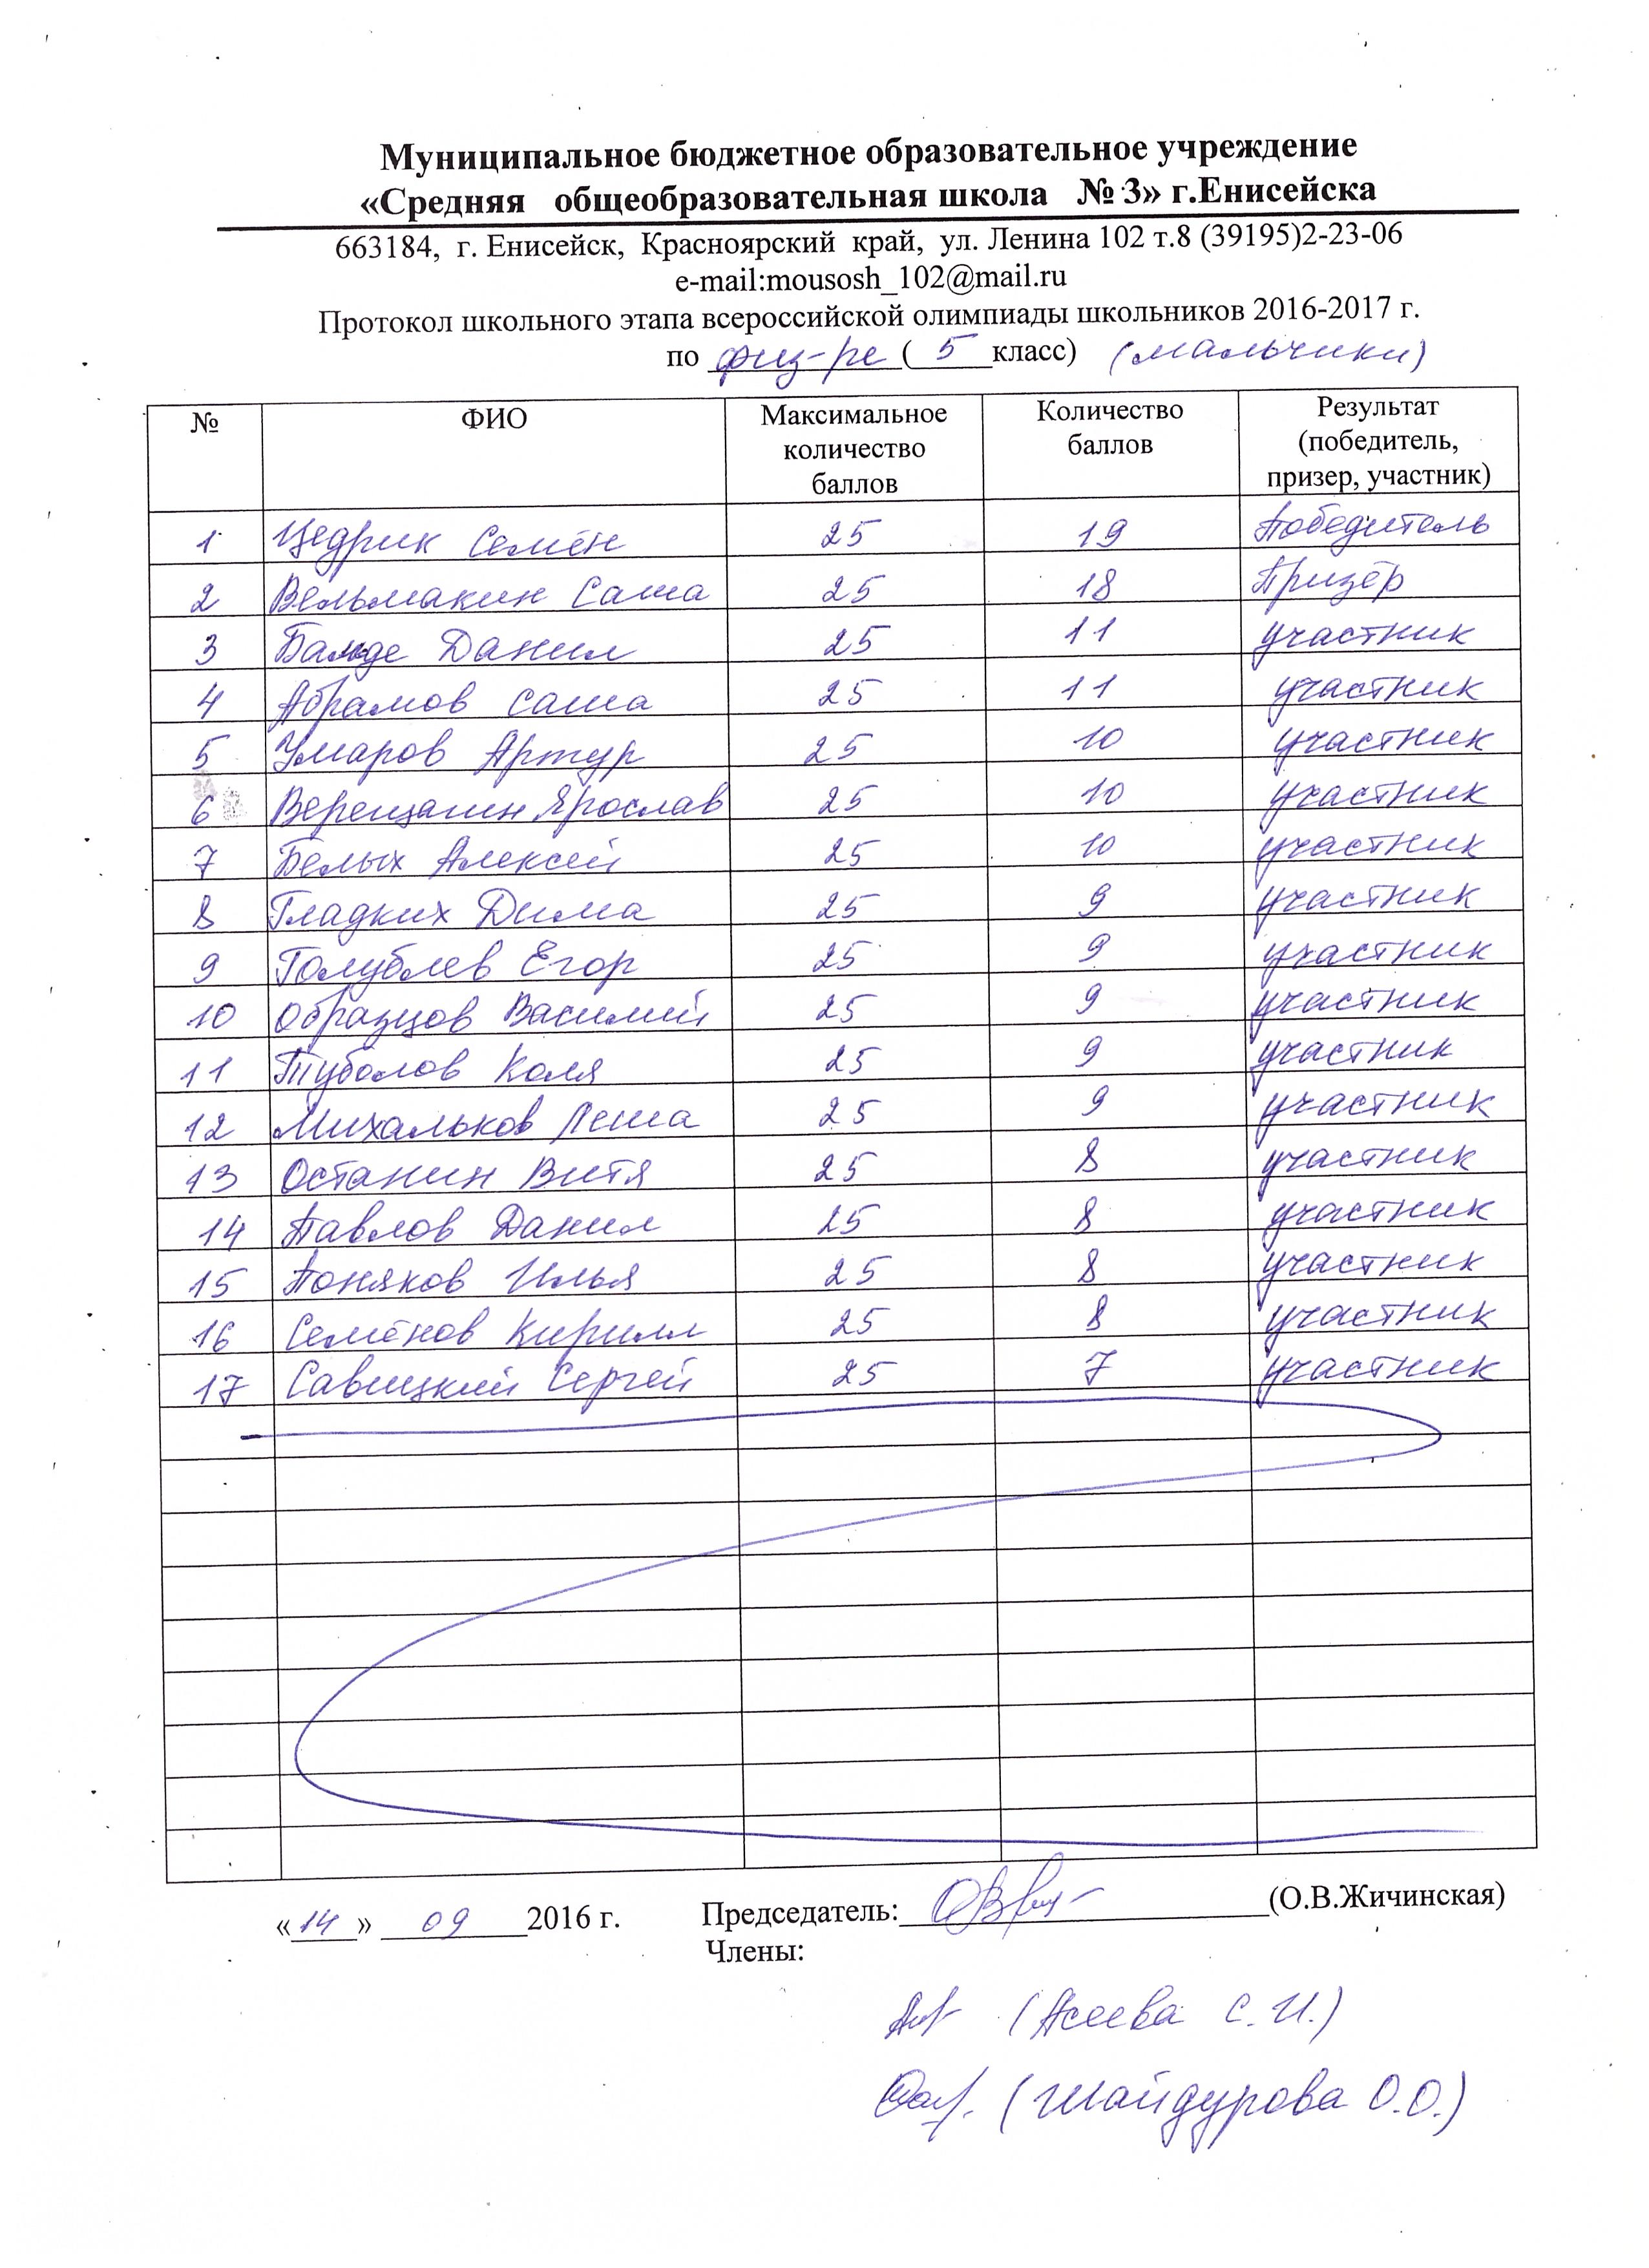 Муниципальное бюджетное образовательное учреждение
«Средняя общеобразовательная школа № 3» г.Енисейска
663184, г. Енисейск, Красноярский край, ул. Ленина 102 т.8 (39195)2-23-06
e-mail:mousosh_102@mail.ru
Протокол школьного этапа всероссийской олимпиады школьников 2016-2017 г.
по физ-ре ( 5 класс) (мальчики)
№ ФИО Максимальное количество баллов Количество баллов Результат (победитель, призер, участник)
1 Цедрик Семён 25 19 Победитель
2 Вельмакин Саша 25 18 Призёр
3 Данил 25 11 участник
4 Абрамов Саша 25 11 участник
5 Умаров Артур 25 10 участник
6 Верещагин Ярослав 25 10 участник
7 Белых Алексей 25 10 участник
8 Гладких Дима 25 9 участник
9 Голублев Егор 25 9 участник
10 Образцов Василий 25 9 участник
11 Туболов Коля 25 9 участник
12 Михальков Леша 25 9 участник
13 Останин Витя 25 8 участник
14 Павлов Данил 25 8 участник
15 Поняков Илья 25 8 участник
16 Семёнов Кирилл 25 8 участник
17 Савицкий Сергей 25 7 участник
«14» 09 2016 г. Председатель: (О.В.Жичинская)
Члены:
(Асеева С.И.)
(Шайдурова О.О.)